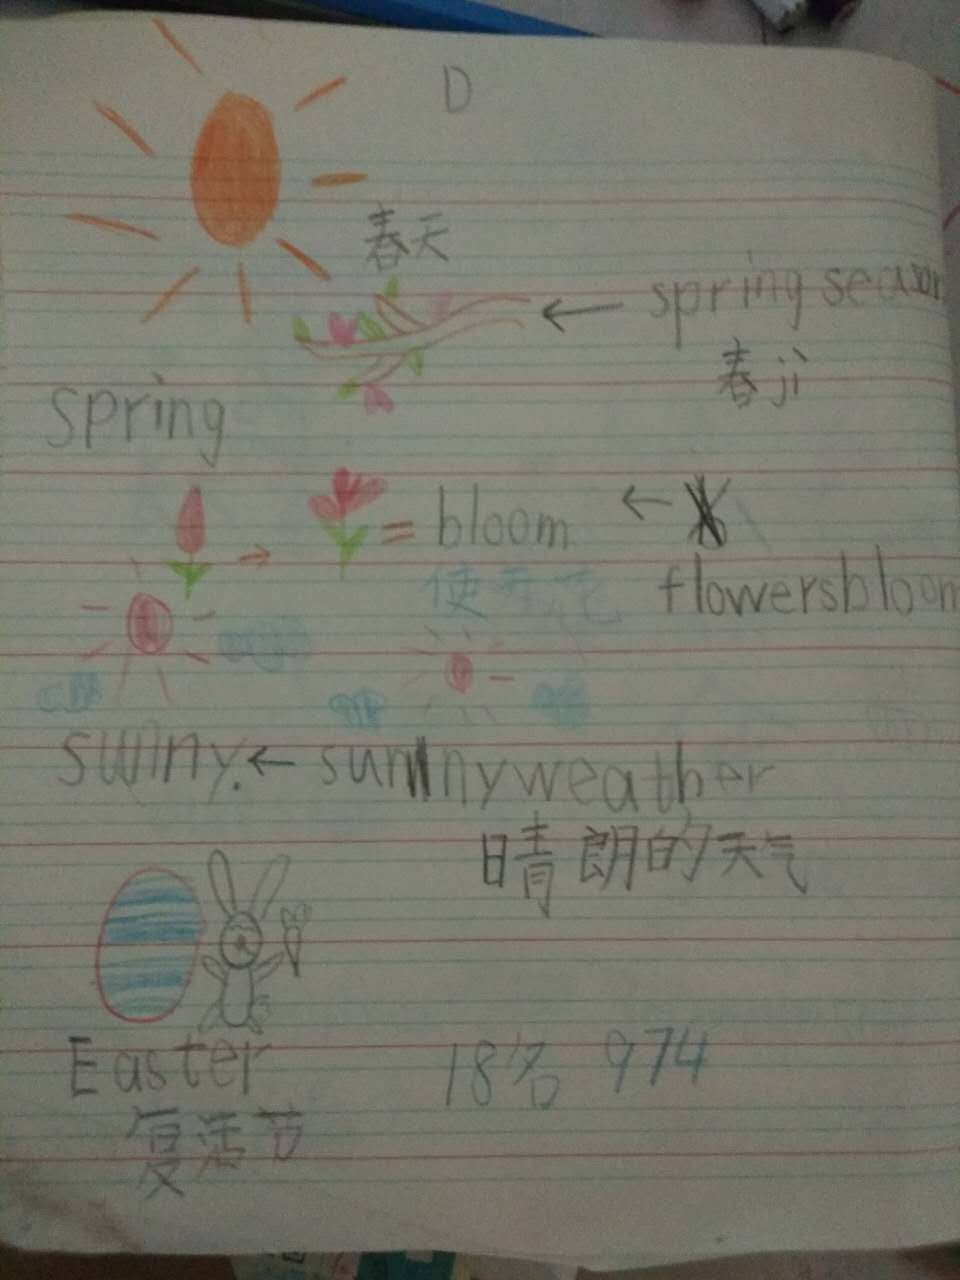 D
春天
spring season
春jì
spring
= bloom
flowersbloom
sunny. ← sunnyweather
晴朗的天气
Easter
复活节
974